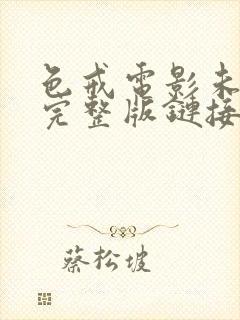 色戒电影未
完整版鏈接
蔡松坡